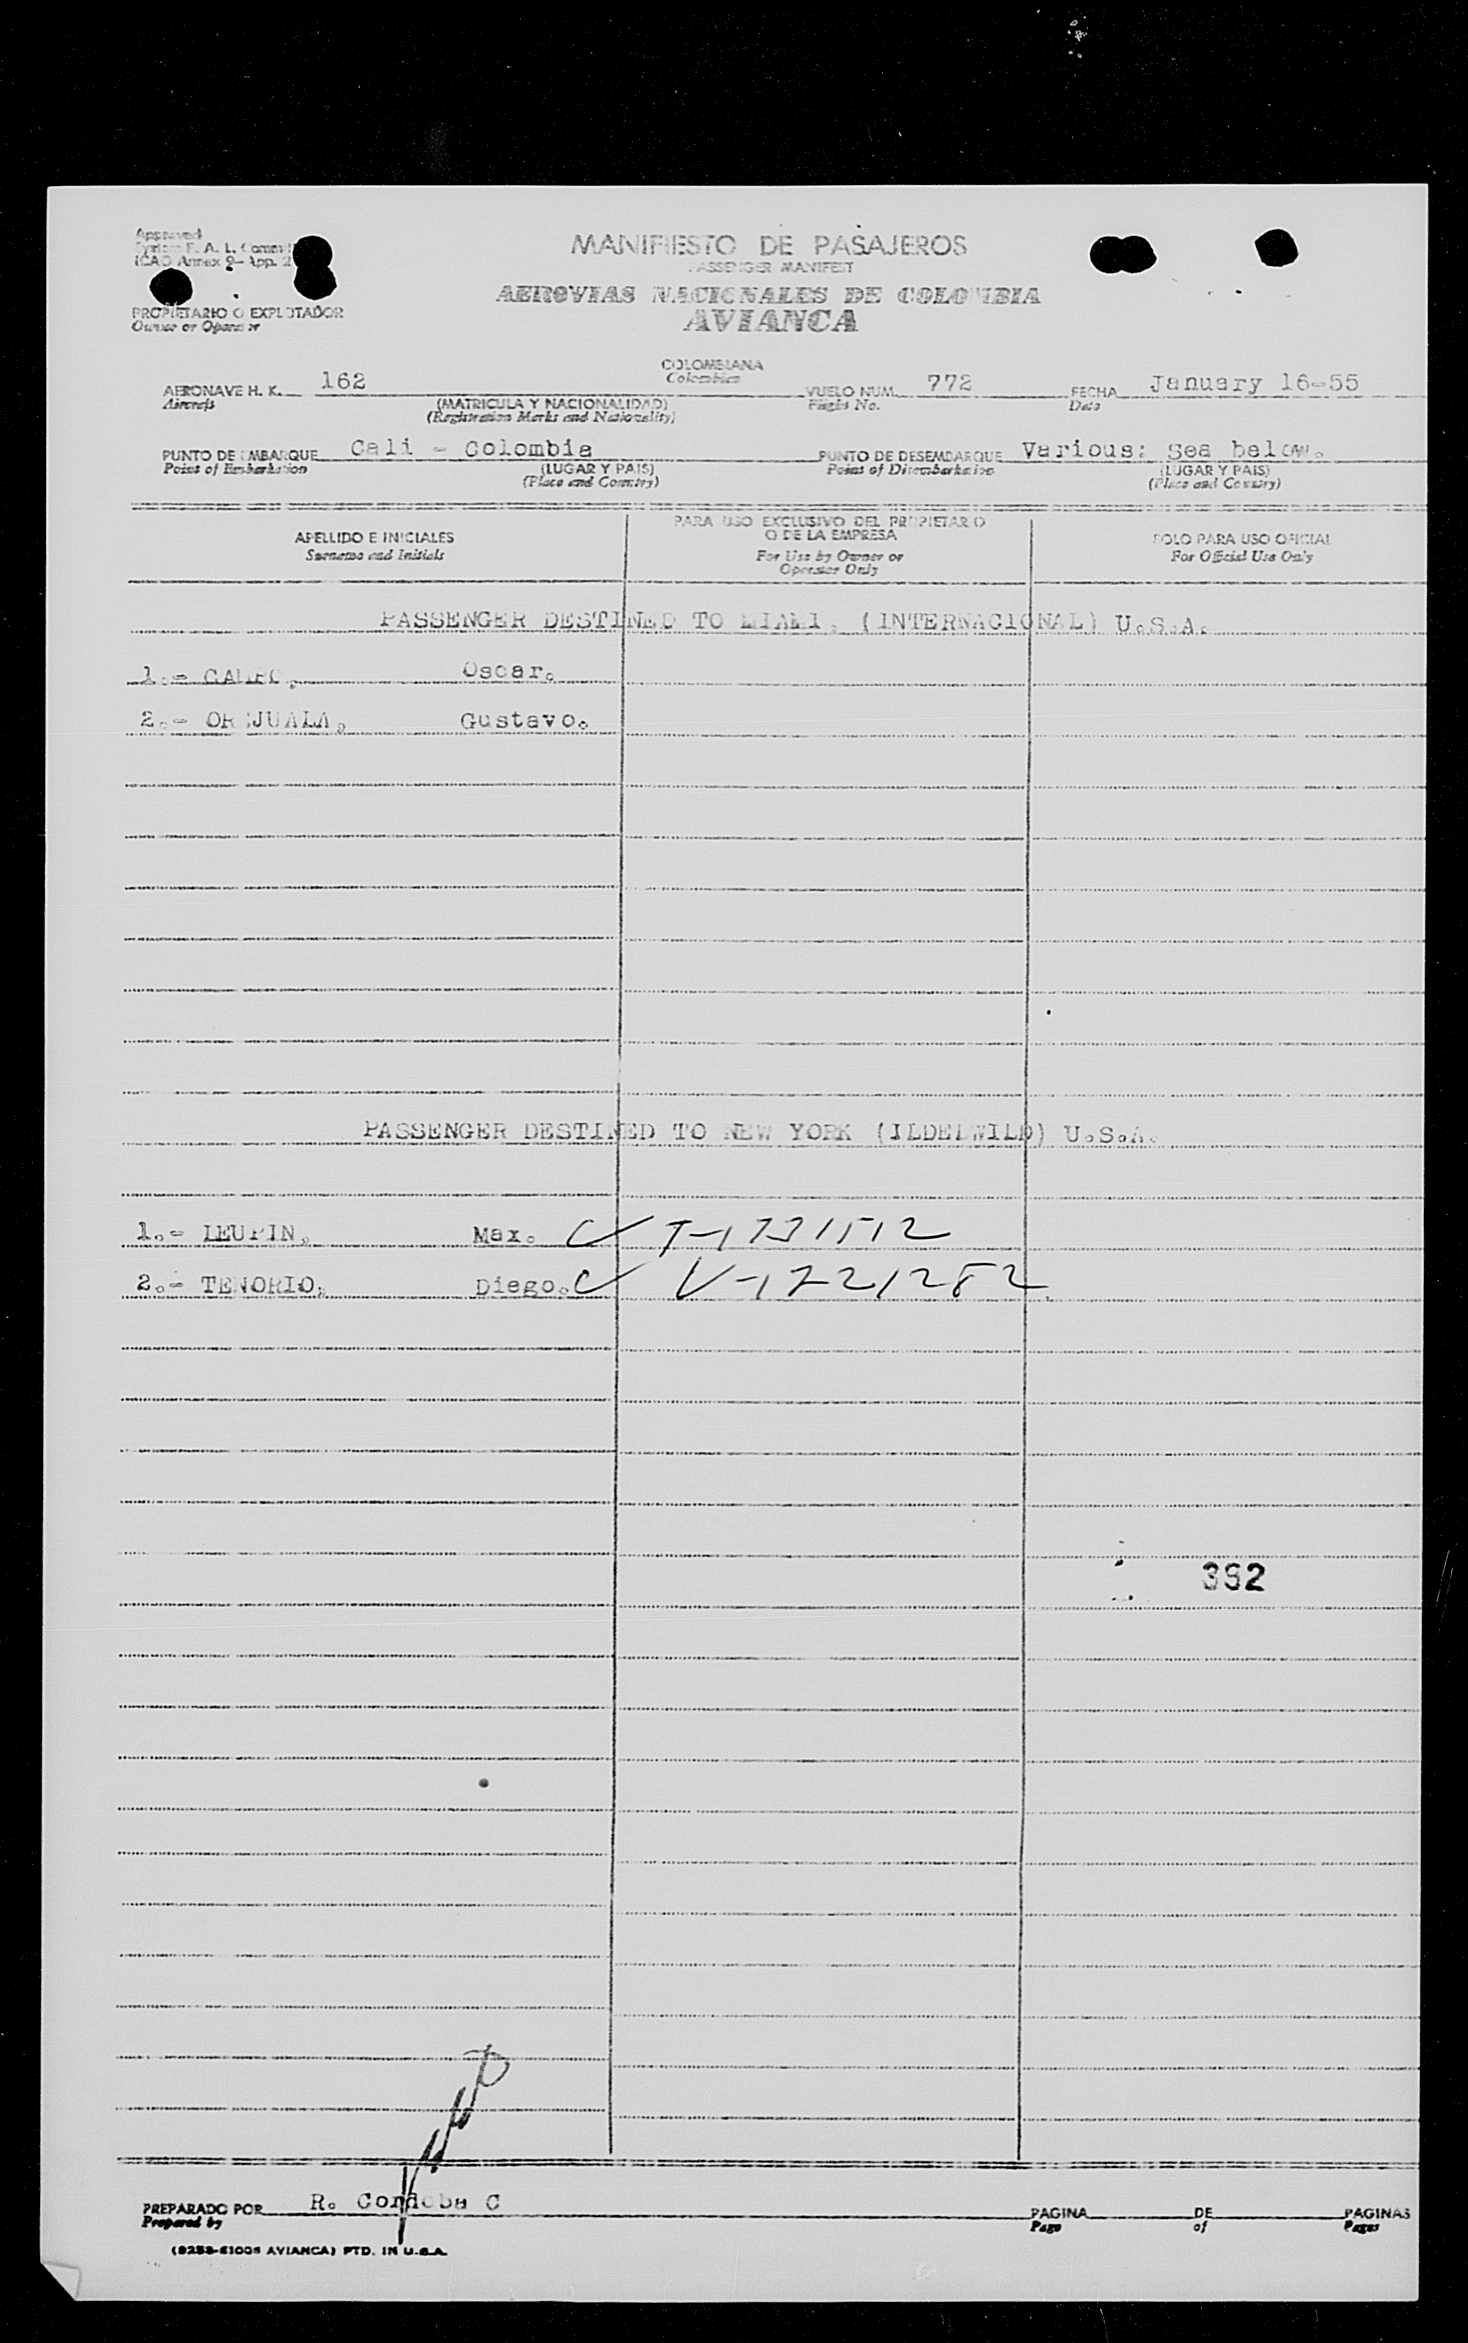 Approved
F. A. L.
ICAO Annex 9 - App. 2
MANIFIESTO DE PASAJEROS
PASSENGER MANIFEST
AEROVIAS NACIONALES DE COLOMBIA
AVIANCA
PROPIETARIO O EXPLOTADOR
Owner or Operator
COLOMBIANA
Colombian
AERONAVE H. K. 162
Aircraft
(MATRICULA Y NACIONALIDAD)
(Registration Marks and Nationality)
VUELO NUM. 772
Flight No.
FECHA January 16-55
Date
PUNTO DE EMBARQUE Cali - Colombia
Point of Embarkation
(LUGAR Y PAIS)
(Place and Country)
PUNTO DE DESEMBARQUE Various: See below.
Point of Disembarkation
(LUGAR Y PAIS)
(Place and Country)
APELLIDO E INICIALES
Surname and Initials
PARA USO EXCLUSIVO DEL PROPIETARIO
O DE LA EMPRESA
For Use by Owner or
Operator Only
SOLO PARA USO OFICIAL
For Official Use Only
PASSENGER DESTINED TO MIAMI. (INTERNACIONAL) U.S.A.
1.- Oscar.
2.- OREJUALA, Gustavo.
PASSENGER DESTINED TO NEW YORK (ILDELWILD) U.S.A.
1.- LEUPIN, Max. T-1731512
2.- TENORIO, Diego. V-1721282
392
PREPARADO POR R. Cordoba C
Prepared by
PAGINA DE PAGINAS
Page of Pages
(9253-51005 AVIANCA) PTD. IN U.S.A.